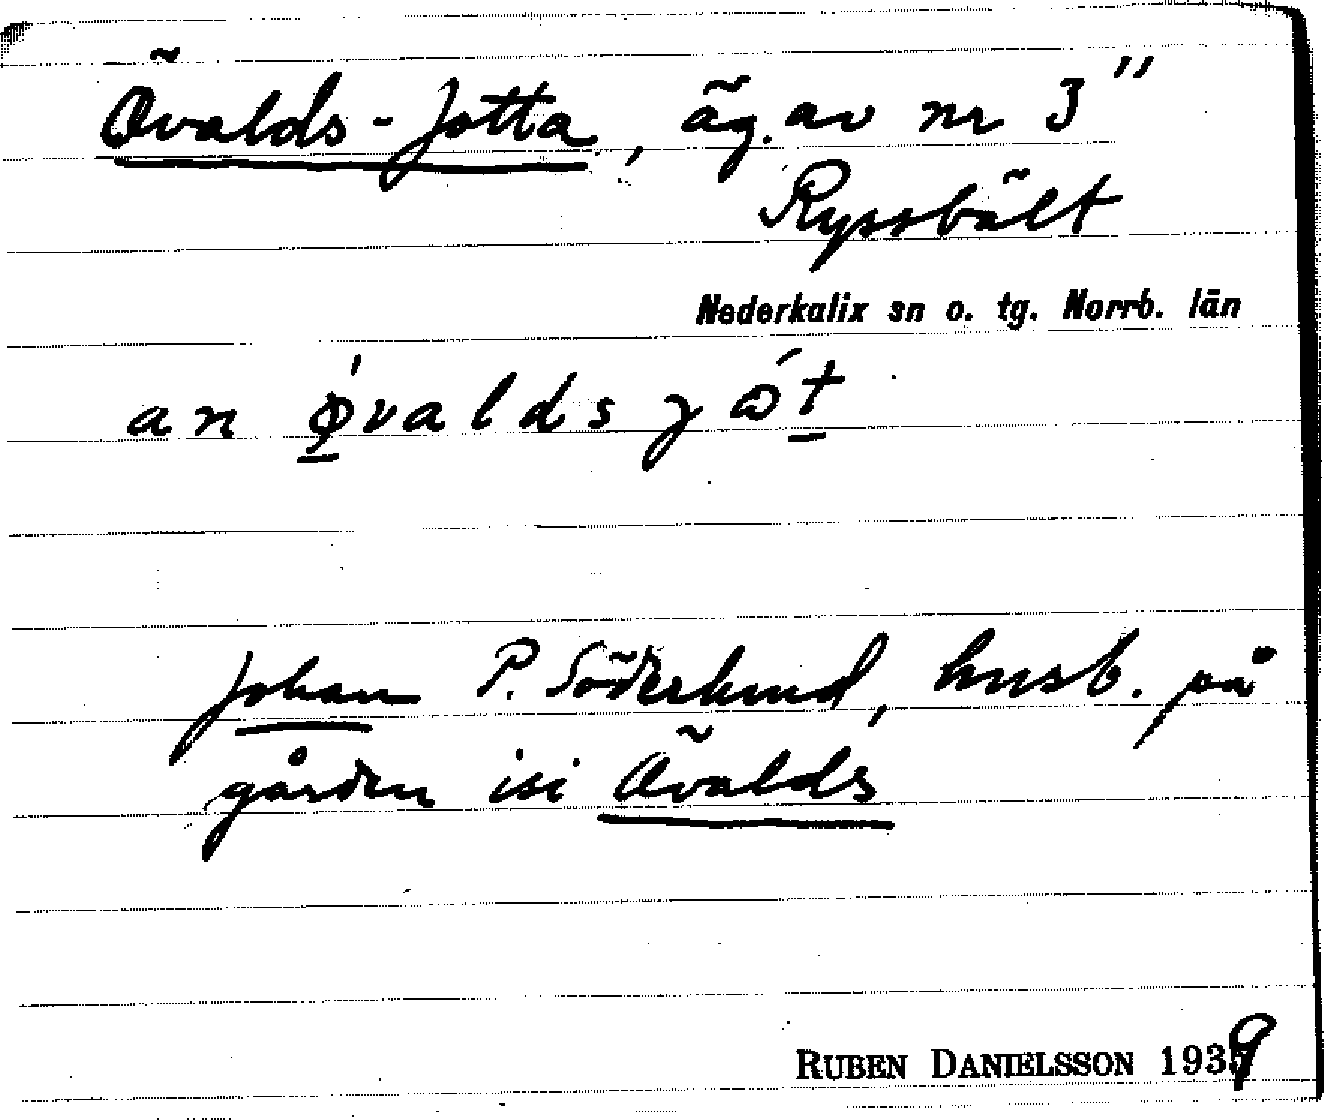 Övalds-Jotta, äg. av nr 3"
Ryssbält
Nederkalix sn o. tg. Norrb. län
an ǿ̲valdsjɷ́t̲
Johan P. Söderlund, husb. på
gården isi Övalds
RUBEN DANIELSSON 1939